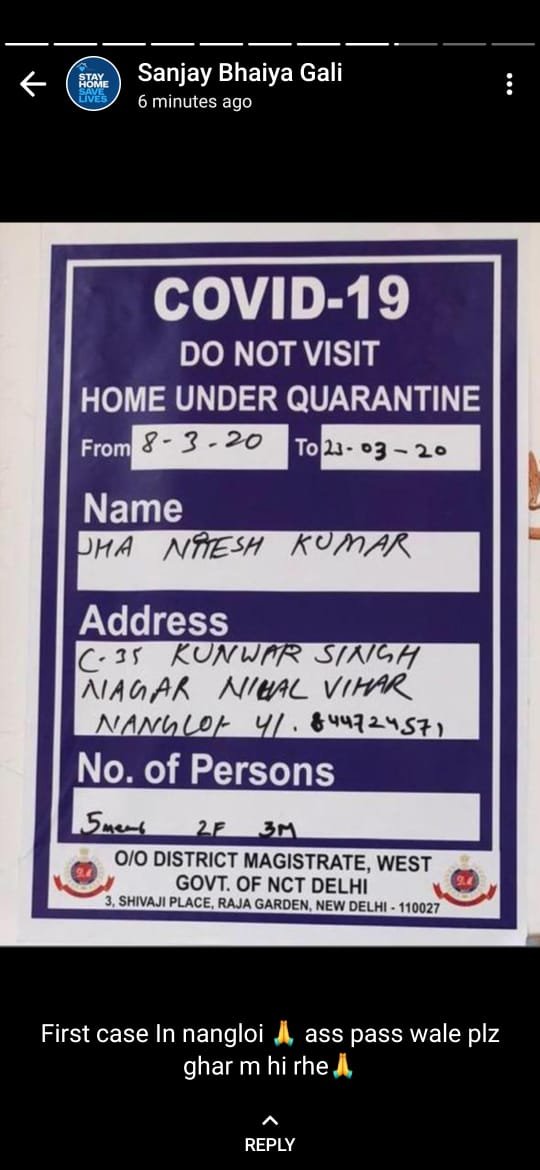 Sanjay Bhaiya Gali
6 minutes ago
STAY
HOME
SAVE
LIVES
COVID-19
DO NOT VISIT
HOME UNDER QUARANTINE
From 8-3-20 To 23-03-20
Name
JHA NITESH KUMAR
Address
C-35 KUNWAR SINGH
NAGAR NIHAL VIHAR
NANGLOI 41. 844724571
No. of Persons
5 2F 3M
O/O DISTRICT MAGISTRATE, WEST
GOVT. OF NCT DELHI
3, SHIVAJI PLACE, RAJA GARDEN, NEW DELHI - 110027
First case In nangloi 🙏 ass pass wale plz
ghar m hi rhe🙏
REPLY